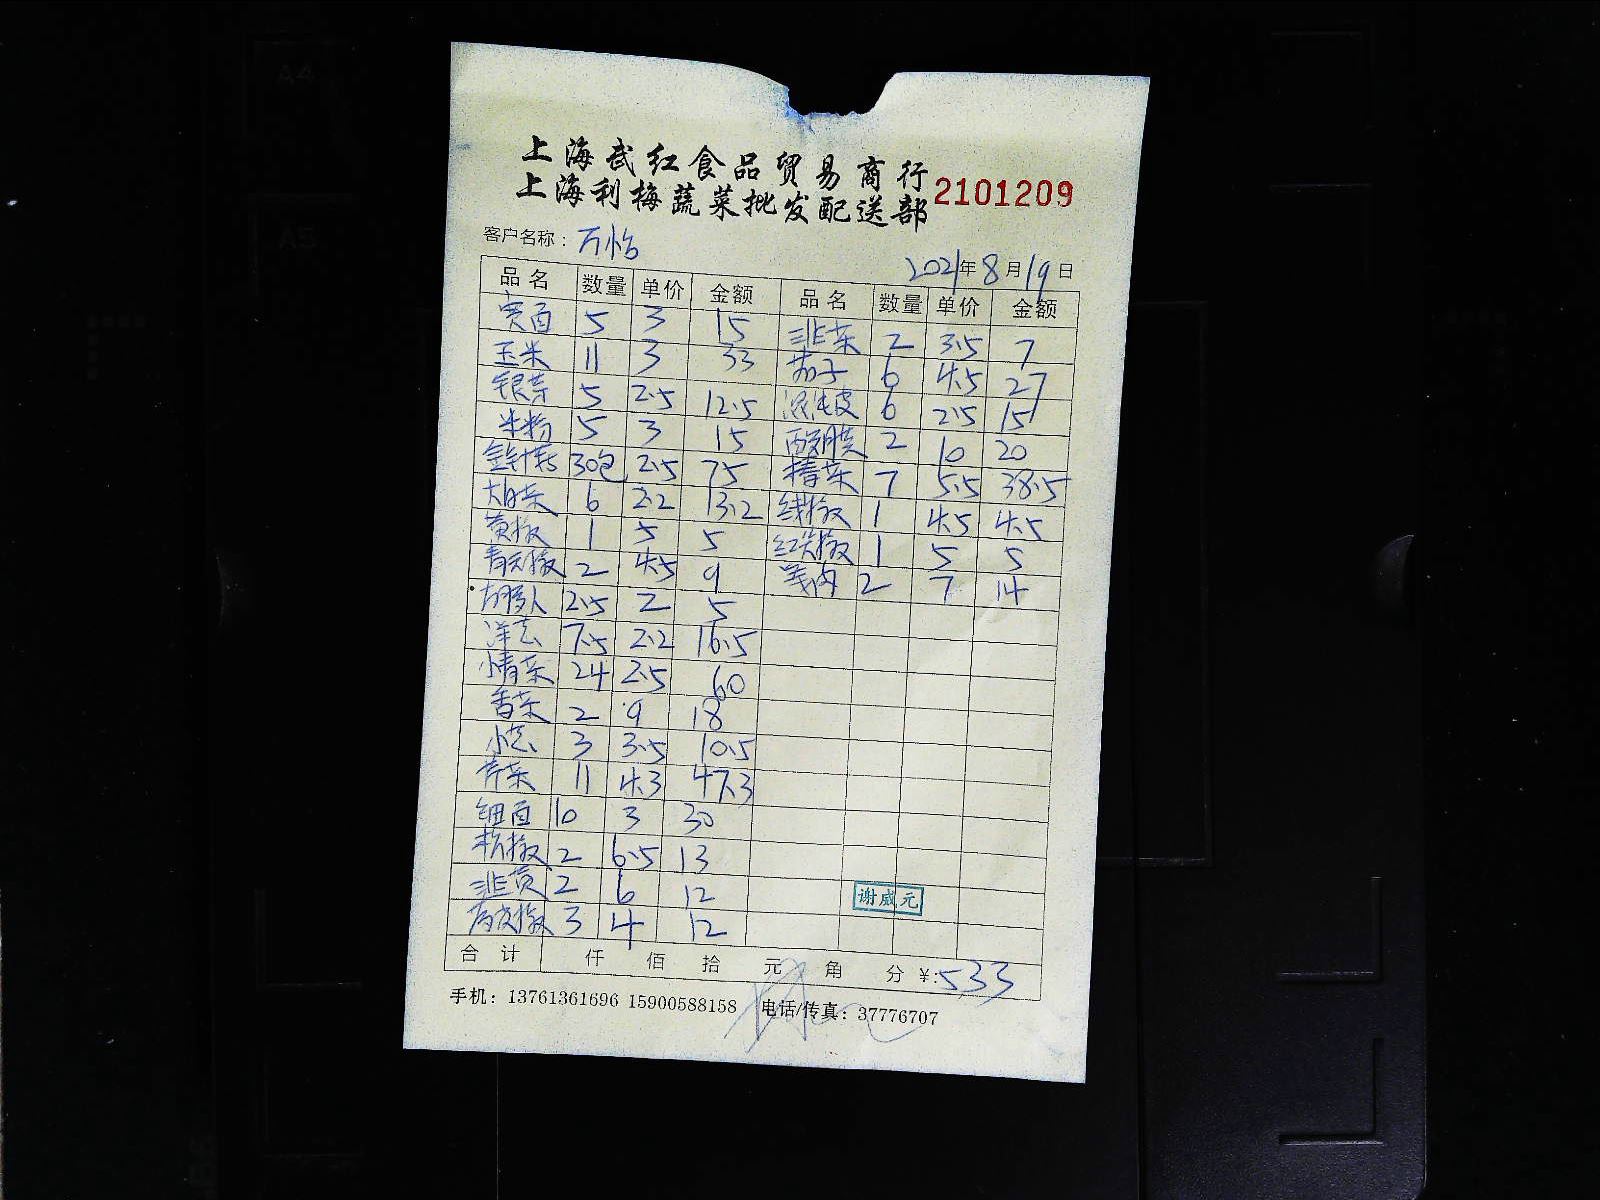 上海武红食品贸易商行
上海利梅蔬菜批发配送部
2101209
客户名称：万怡
2021年8月19日
品名 数量 单价 金额 品名 数量 单价 金额
宽面 5 3 15 韭菜 2 3.5 7
玉米 11 3 33 茄子 6 4.5 27
银芽 5 2.5 12.5 混沌皮 6 2.5 15
米粉 5 3 15 2 10 20
金针菇 30包 2.5 75 7 5.5 38.5
大白菜 6 2.2 13.2 线椒 1 4.5 4.5
黄椒 1 5 5 红尖椒 1 5 5
青尖椒 2 4.5 9 2 7 14
2.5 2 5
洋葱 7.5 2.2 16.5
24 2.5 60
香菜 2 9 18
小葱 3 3.5 10.5
芹菜 11 4.3 47.3
细面 10 3 30
杭椒 2 6.5 13
韭黄 2 6 12
3 4 12
谢威元
合计 仟 佰 拾 元 角 分 ¥:533
手机：13761361696 15900588158 电话/传真：37776707